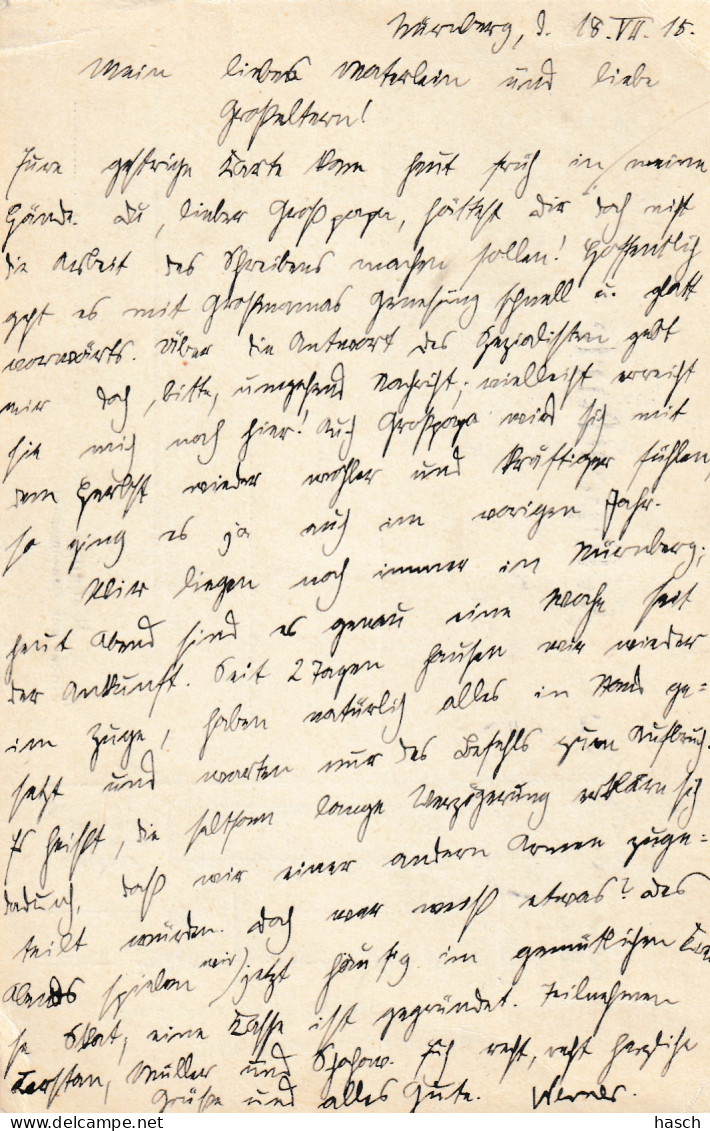 Nürnberg, d. 18. VII. 15.
Mein liebes Vaterlein und liebe
Großeltern!
Eure gestrige Karte kam heut früh in meine
Hände. Du, lieber Großpapa, hättest Dir doch nicht
die Arbeit des Schreibens machen sollen! Hoffentlich
geht es mit Großmamas Genesung schnell u. glatt
vorwärts. Über die Antwort des Spezialisten gebt
mir doch, bitte, umgehend Nachricht; vielleicht erreicht
sie mich noch hier! Auch Großpapa wird sich mit
dem Herbst wieder wohler und kräftiger fühlen,
so ging es ja auch im vorigen Jahr.
Wir liegen noch immer in Nürnberg;
heut Abend sind es genau eine Woche seit
der Ankunft. Seit 2 Tagen hausen wir wieder
im Zuge, haben natürlich alles in Stand ge=
setzt und warten nur des Befehls zum Aufbruch.
Es heißt, die seltsam lange Verzögerung erklärn sich
dadurch, daß wir einer andern Armee zuge=
teilt würden. Doch wer weiß etwas? Des
Abends spielen wir jetzt häufig im gemütlichen
se Skat, eine Kasse ist gegründet. Teilnehmen
Kerstan, Müller und Euch recht, recht herzliche
Grüße und alles Gute. Werner.
hasch